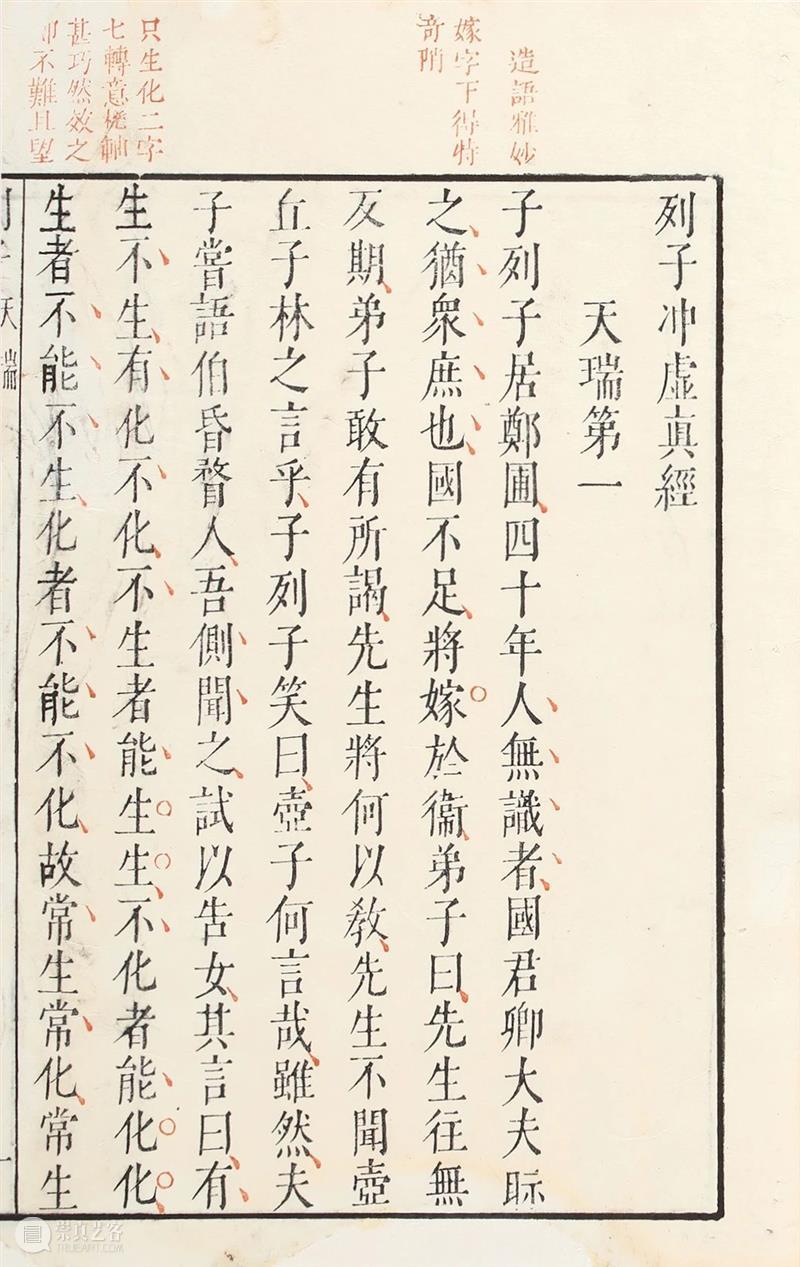 造語雅妙
嫁字下得特
奇陗
只生化二字
七轉意機軸
甚巧然效之
不難且望
列子冲虛真經
天瑞第一
子列子居鄭圃四十年人無識者國君卿大夫眎
之猶衆庶也國不足將嫁於衞弟子曰先生往無
反期弟子敢有所謁先生將何以敎先生不聞壺
丘子林之言乎子列子笑曰壺子何言哉雖然夫
子嘗語伯昏瞀人吾側聞之試以告女其言曰有
生不生有化不化不生者能生生不化者能化化
生者不能不生化者不能不化故常生常化常生
列子 天瑞 一
崇真艺客
TRUEART.COM